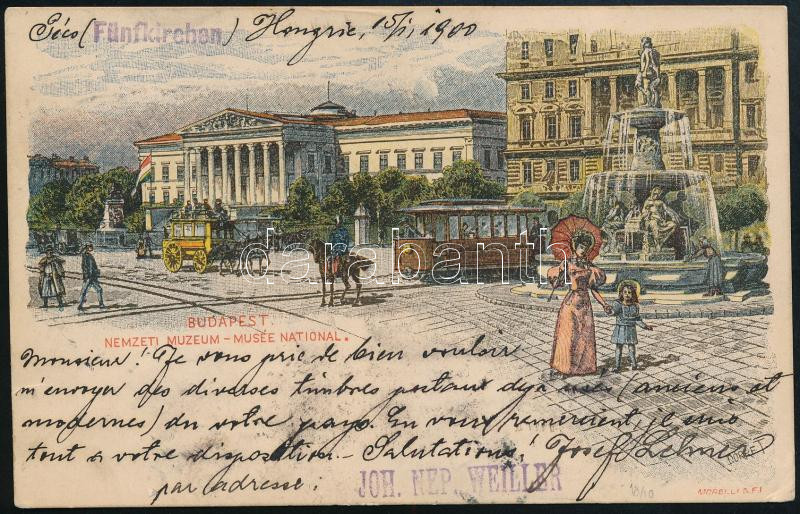 Pécs (Fünfkirchen) Hongrie, 15/1, 1900
darabanth
BUDAPEST.
NEMZETI MUZEUM – MUSÉE NATIONAL.
Monsieur! Je vous prie de bien vouloir
m'envoyer des diverses timbres postaux deja usés (anciens et
modernes) du votre pays. En vous remerciant, je suis
tout a votre disposition. – Salutations! Josef Lehner
par adresse:
JOH. NEP. WEILLER
MORELLI G. F. I.